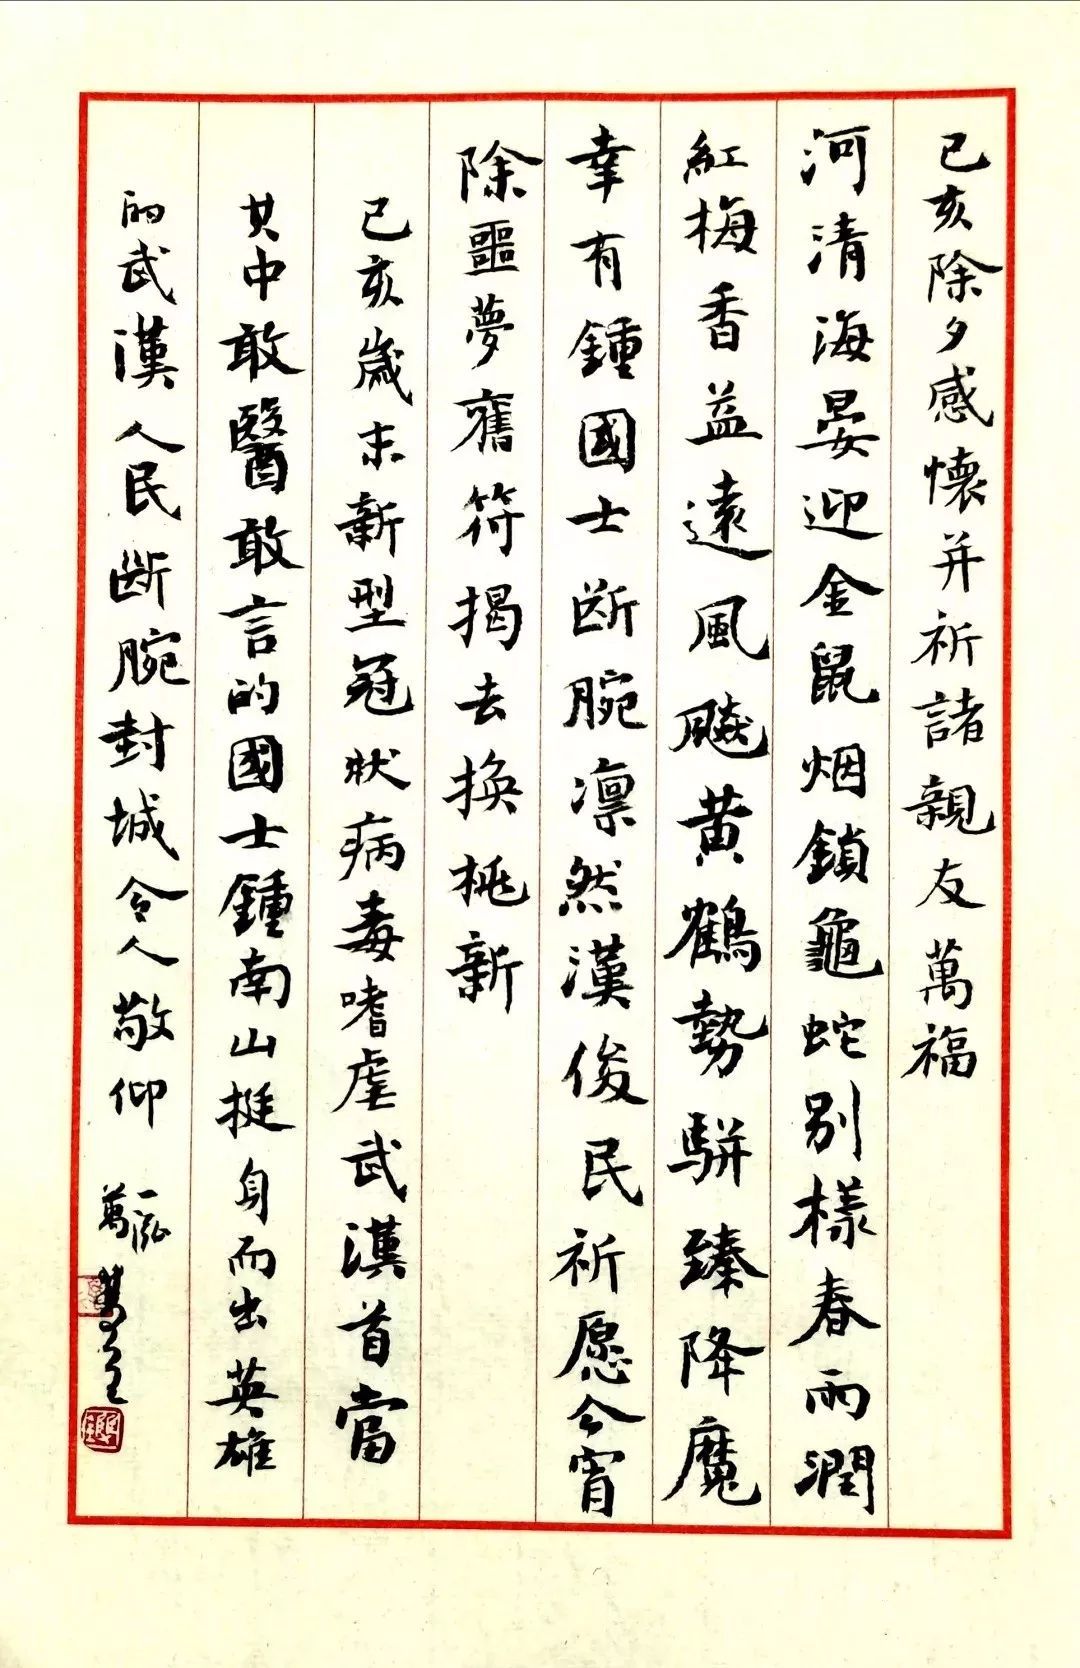 己亥除夕感懷并祈諸親友萬福
河清海晏迎金鼠烟鎖龜蛇別樣春雨潤
紅梅香益遠風飈黄鶴勢駢臻降魔
幸有鍾國士断腕凛然漢俊民祈愿今宵
除噩夢舊符揭去換桃新
己亥歲末新型冠狀病毒嗜虐武漢首當
其中敢醫敢言的國士鍾南山挺身而出英雄
的武漢人民断腕封城令人敬仰